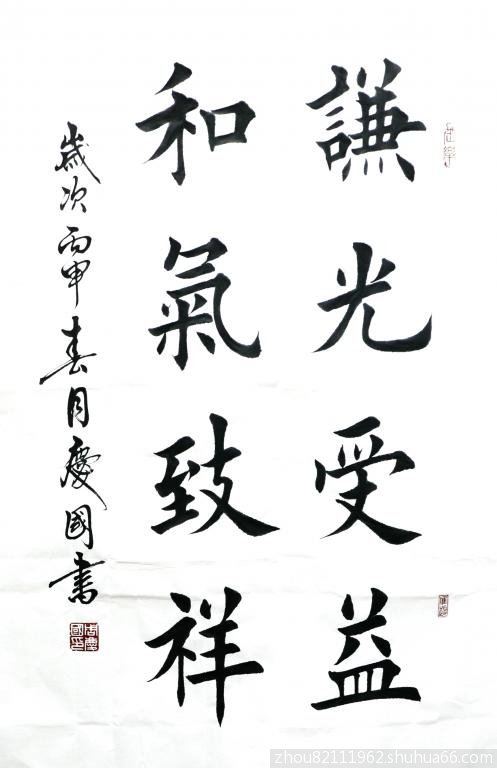 謙光受益
和氣致祥
歲次丙申春月慶國書
周慶國印
zhou82111962.shuhua66.com